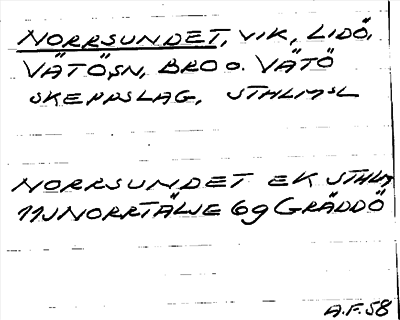 NORRSUNDET, VIK, LIDÖ,
VÄTÖ,SN, BRO o. VÄTÖ
SKEPPSLAG, STHLMSL
NORRSUNDET EK STHLM
11J NORRTÄLJE 6g GRÄDDÖ
A.F. 58